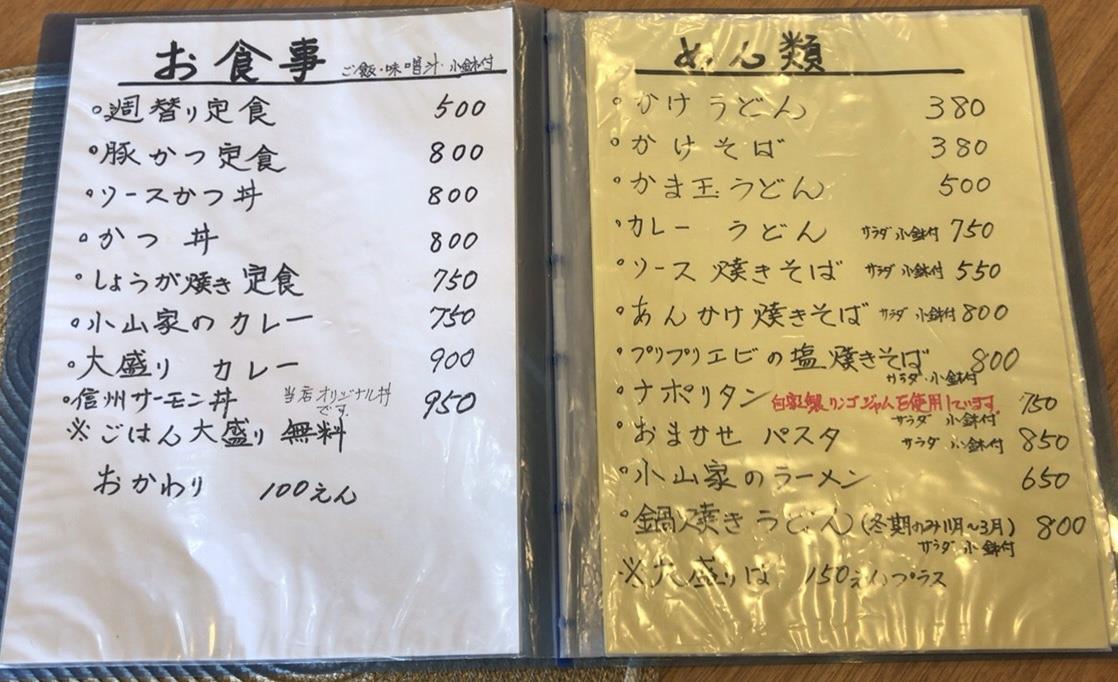 お食事 ご飯・味噌汁・小鉢付
。週替り定食 500
。豚かつ定食 800
。ソースかつ丼 800
。かつ丼 800
。しょうが焼き定食 750
。小山家のカレー 750
。大盛り カレー 900
。信州サーモン丼 当店オリジナル丼です。 950
※ごはん大盛り無料
おかわり 100えん
めん類
。かけうどん 380
。かけそば 380
。かま玉うどん 500
。カレー うどん サラダ小鉢付 750
。ソース焼きそば サラダ小鉢付 550
。あんかけ焼きそば サラダ小鉢付 800
。プリプリエビの塩焼きそば 800
サラダ・小鉢付
。ナポリタン 自家製リンゴジャムを使用しています。 750
サラダ 小鉢付
。おまかせ パスタ サラダ 小鉢付 850
。小山家のラーメン 650
。鍋焼きうどん(冬期のみ11月〜3月) 800
サラダ 小鉢付
※大盛りは 150えんプラス